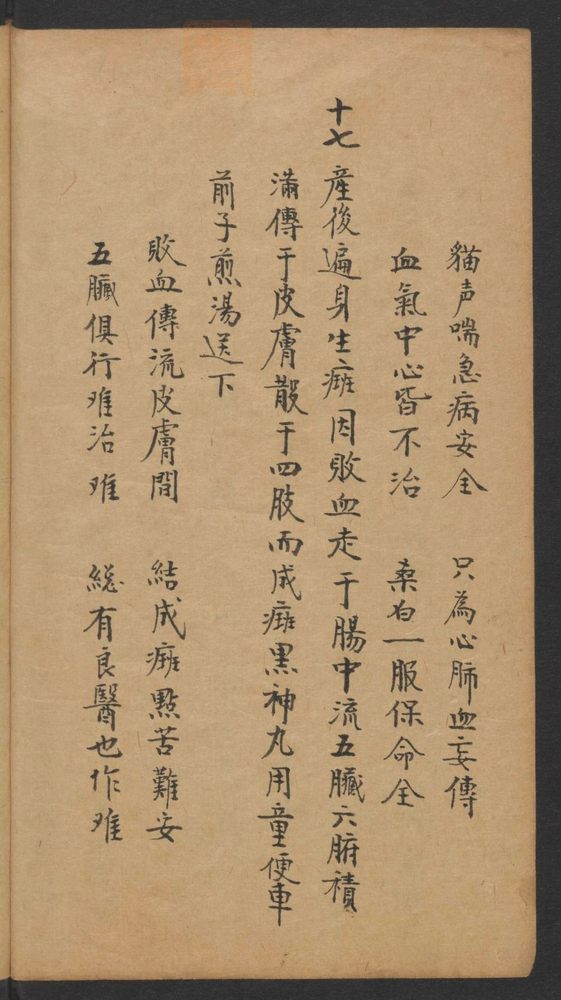 貓声喘急病安全　只為心肺血妄傳
血氣中心皆不治　桑白一服保命全
十七　產後遍身生癍因敗血走于腸中流五臟六腑積
滿傳于皮膚散于四肢而成癍黑神丸用童便車
前子煎湯送下
敗血傳流皮膚間　結成癍點苦難安
五臟俱行难治难　総有良醫也作难